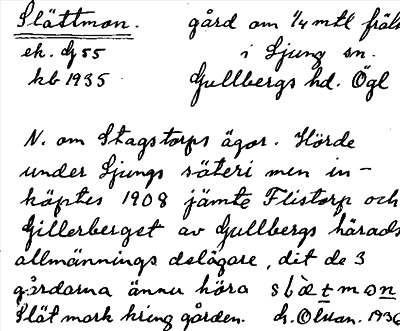 Slättmon. gård om 1/4 mtl fräls
ek. Gj 55 i Ljung sn.
kb 1935 Gullbergs hd. Ögl
N. om Stagstorps ägor. Hörde
under Ljungs säteri men in-
köptes 1908 jämte Flistorp och
Gillerberget av Gullbergs härads
allmännings delägare, dit de 3
gårdarna ännu höra
Slät mark kring gården. h. Olsson. 1936